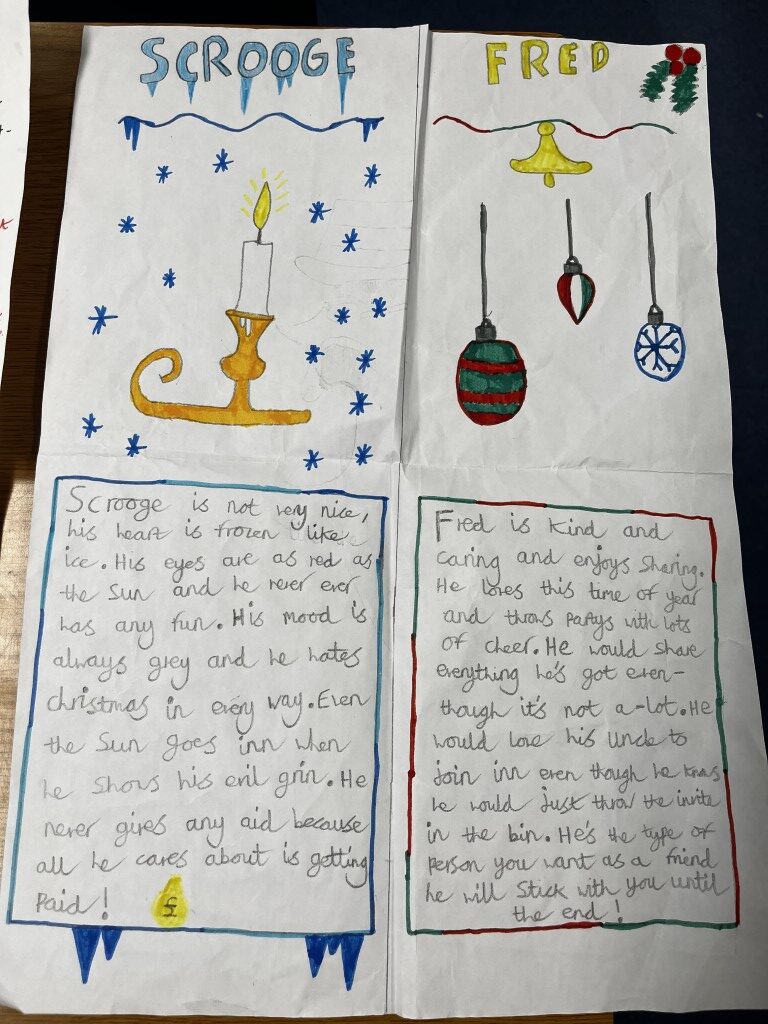 SCROOGE
Scrooge is not very nice,
his heart is frozen like
ice. His eyes are as red as
the Sun and he never ever
has any fun. His mood is
always grey and he hates
christmas in every way. Even
the Sun goes inn when
he shows his evil grin. He
never gives any aid because
all he cares about is getting
Paid!
£
FRED
Fred is kind and
caring and enjoys sharing.
He loves this time of year
and throws Partys with lots
of cheer. He would share
everything he's got even-
though it's not a-lot. He
would love his Uncle to
join inn even though he knows
he would just throw the invite
in the bin. He's the type of
person you want as a friend
he will Stick with you until
the end!